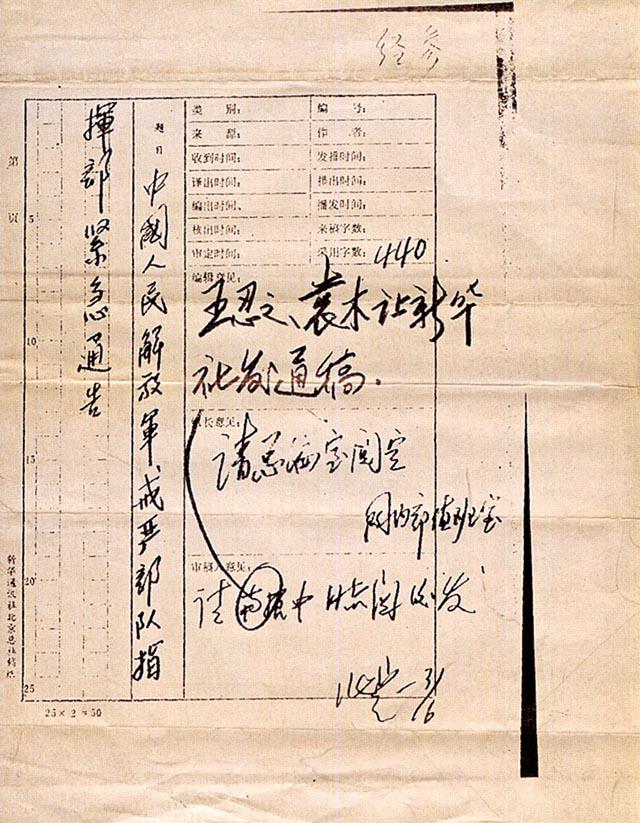 经参
类别：
编号：
来源：
作者：
收到时间：
发稿时间：
译出时间：
播出时间：
编出时间：
播发时间：
核出时间：
来稿字数：
审定时间：
采用字数：440
编辑意见：
王忍之、袁木让新华
社发通稿．
社长意见：
请总编室阅定
国内部值班室
审稿人意见：
请南振中同志阅后发
3/6
题目
中國人民解放軍戒严部队指
揮部紧急通告
第 页
5
10
15
20
25
25×2＝50
新华通讯社北京总社稿纸